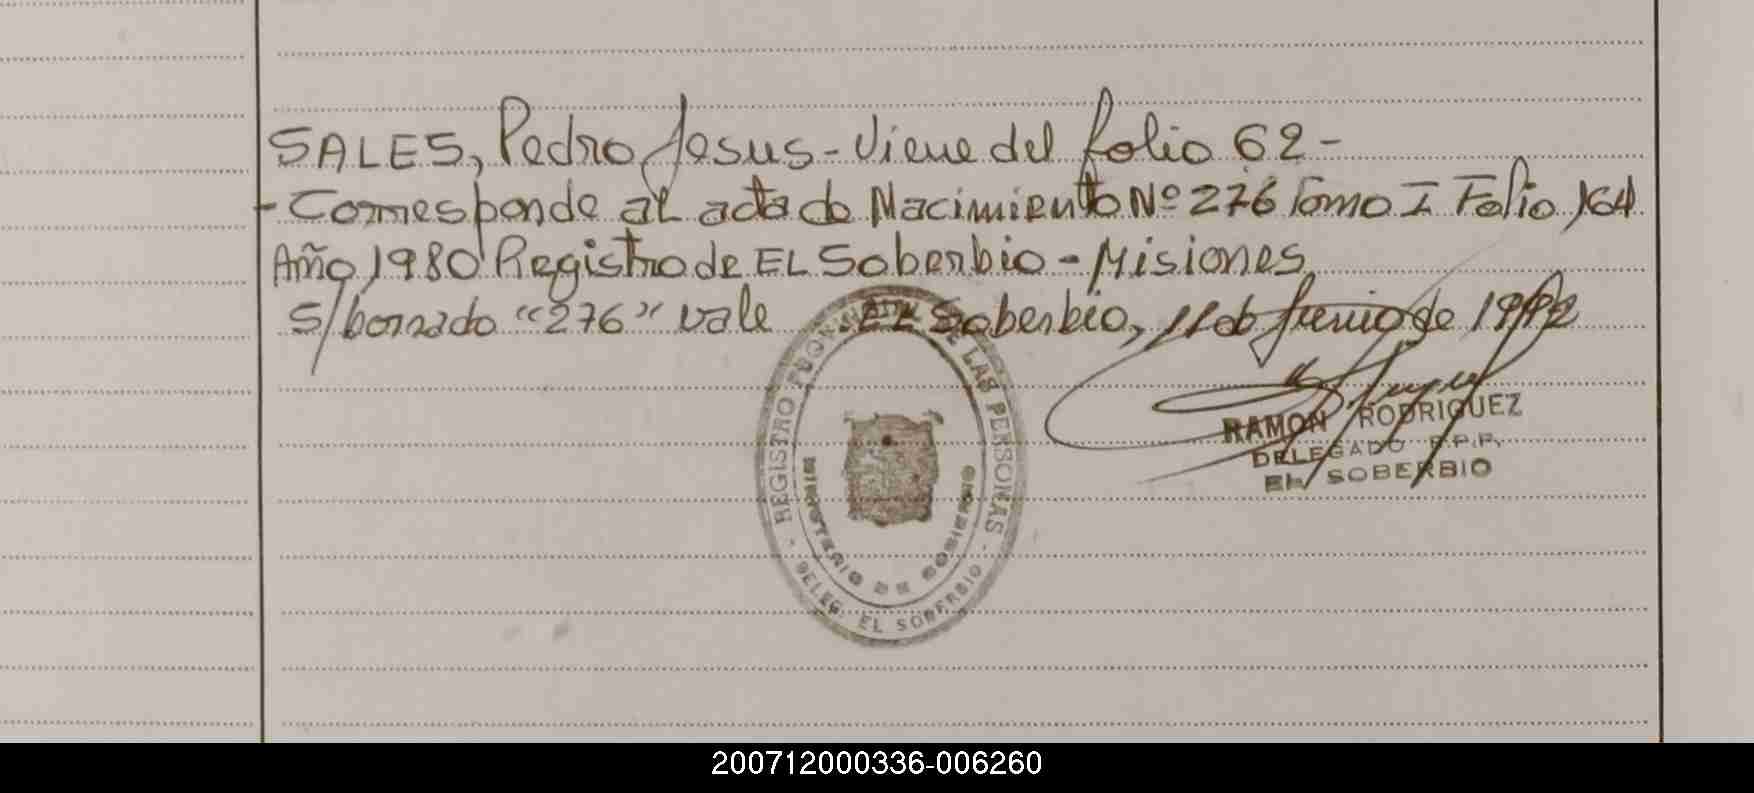 SALES, Pedro Jesus - Viene del folio 62 -
- Corresponde al acta de Nacimiento Nº 276 Tomo I Folio 164
Año 1980 Registro de EL Soberbio - Misiones
S/borrado "276" vale EL Soberbio, 11 de Junio de 1992
REGISTRO PROVINCIAL DE LAS PERSONAS
MINISTERIO DE GOBIERNO
- DELEG. EL SOBERBIO -
RAMON RODRIGUEZ
DELEGADO R.P.P.
EL SOBERBIO
200712000336-006260